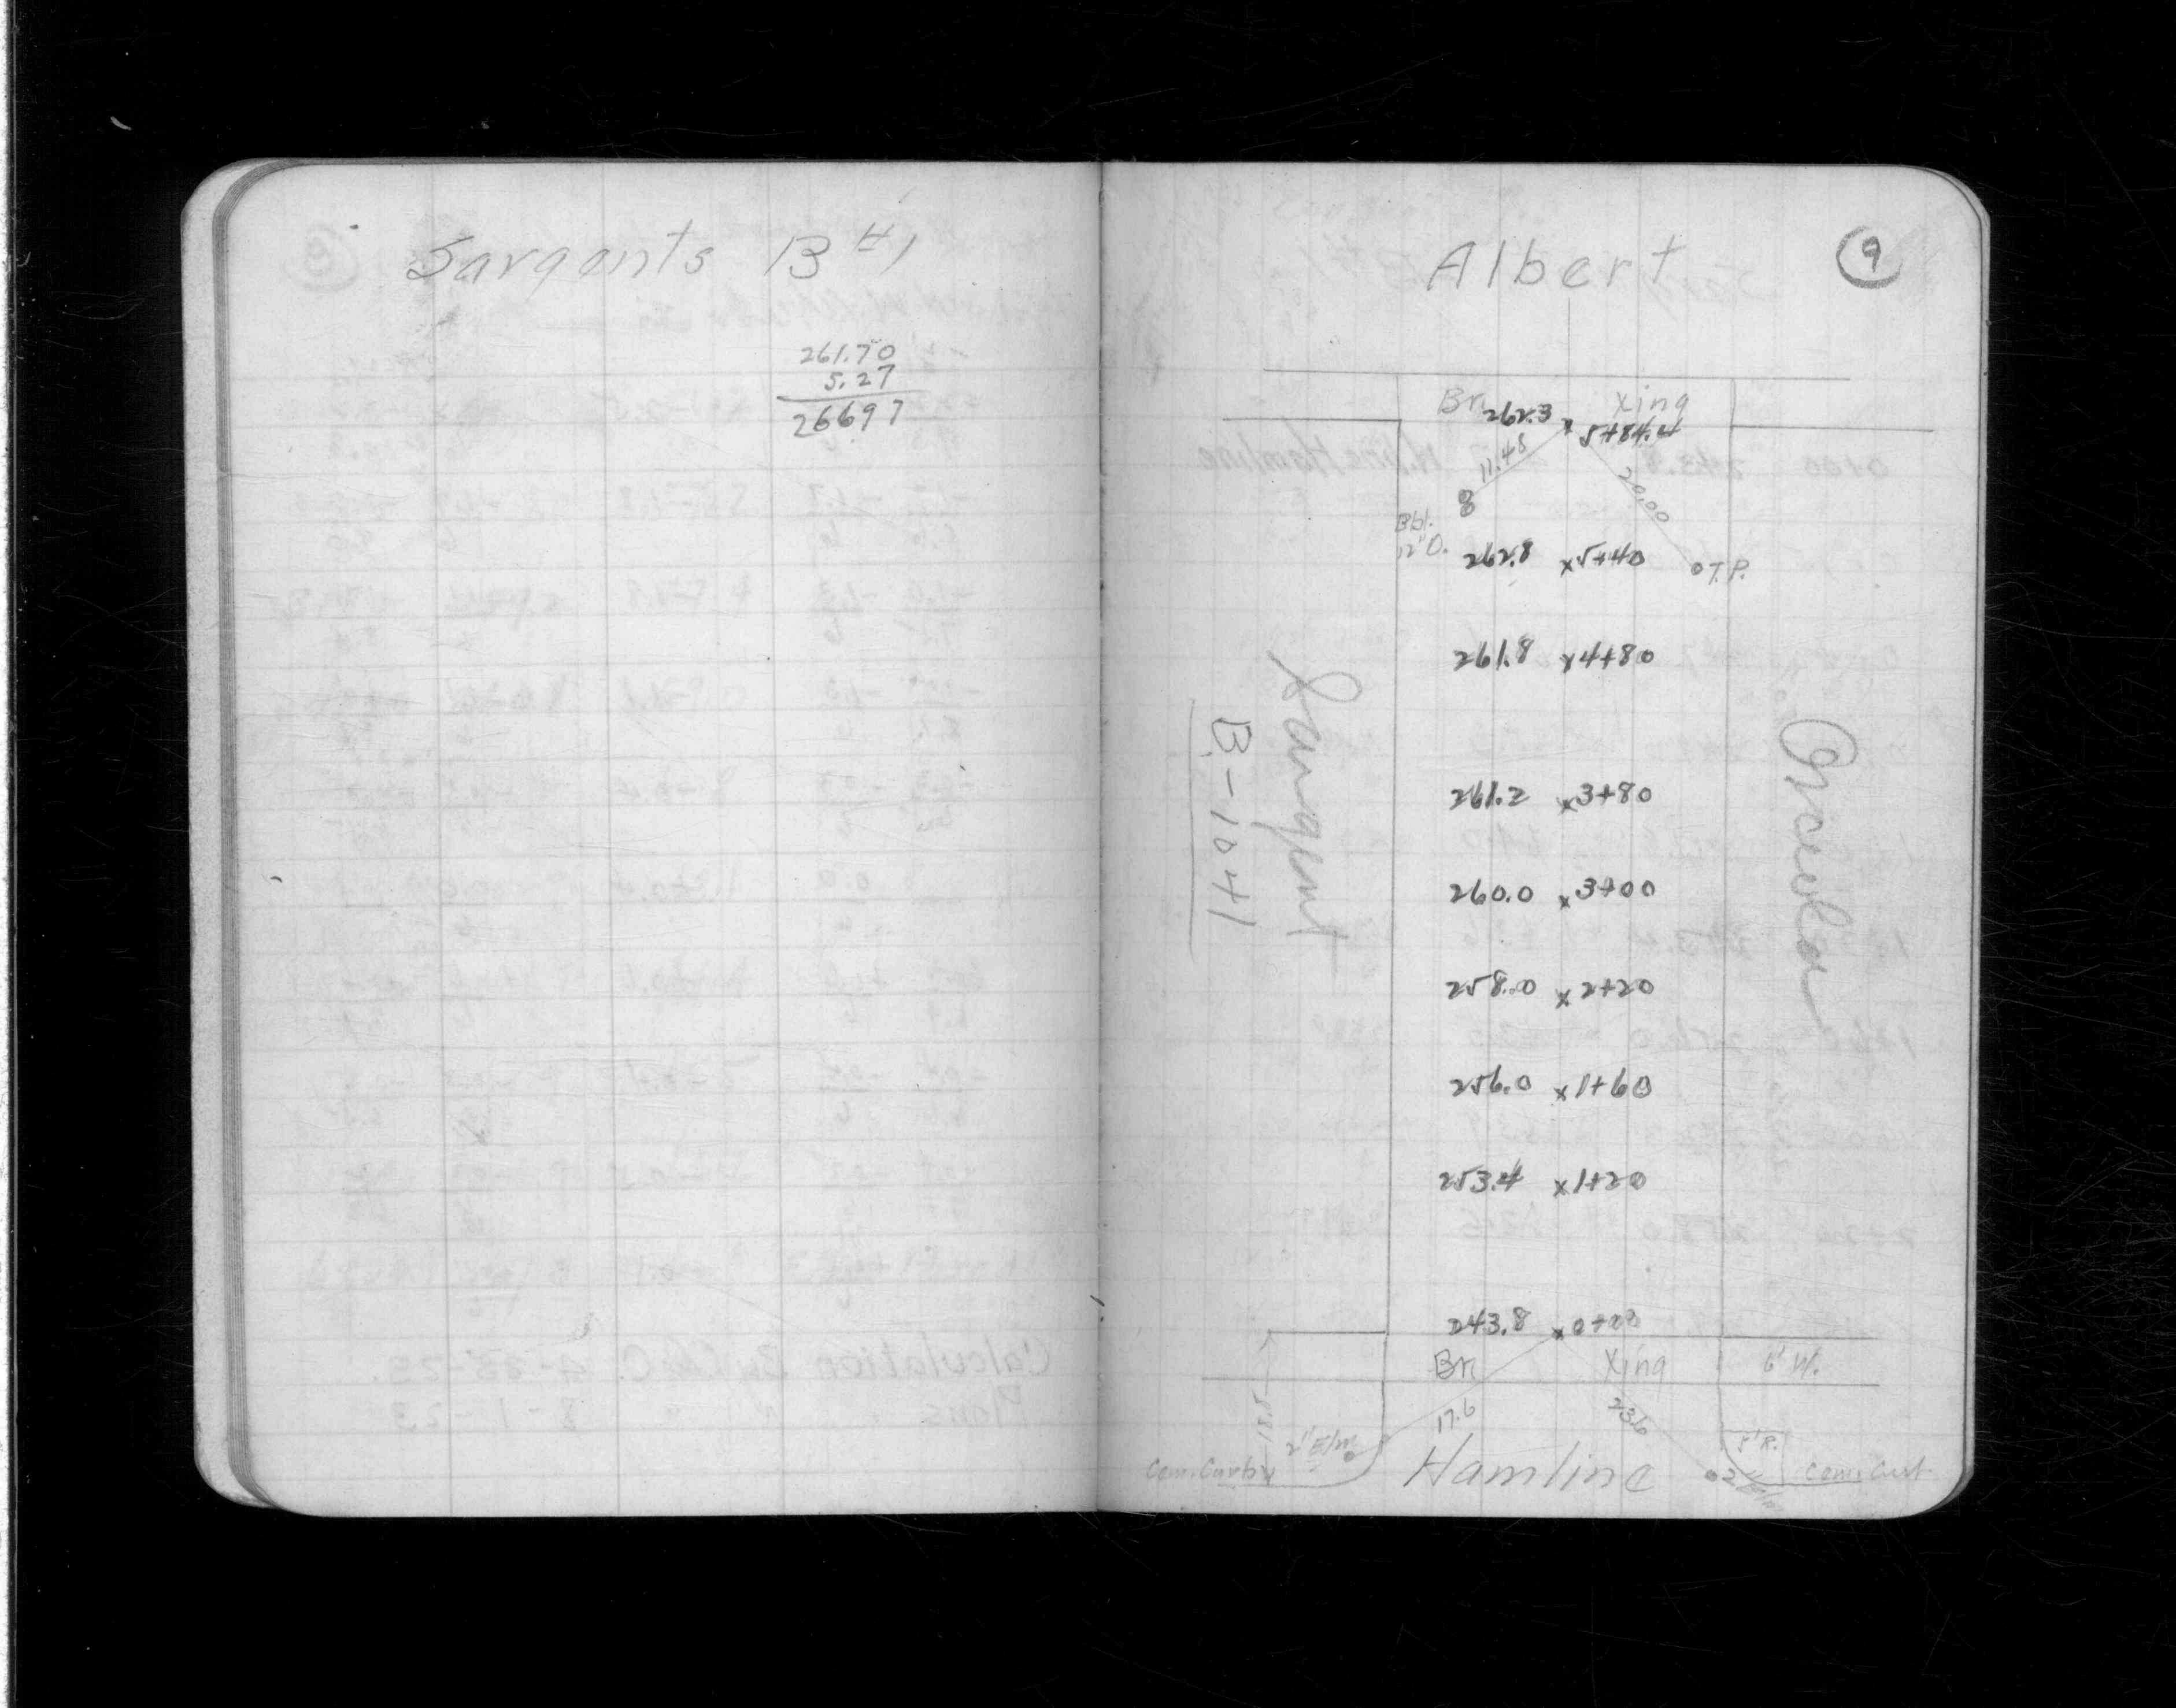 Sargants B#1
261.70
5.27
26697
9
Albert
Br. Xing
262.3 x 5+84.4
11.45
20.00
8
Bbl.
12" O.
262.8 x5+40
T.P.
261.8 x4+80
Sargent
B-1041
Osceola
261.2 x3+80
260.0 x3+00
258.0 x2+20
256.0 x1+60
253.4 x1+20
243.8 x0+00
Br. Xing 6' W.
17.6 23.6
2" Elm
Cem. Curb
Hamline
Cem. Curb